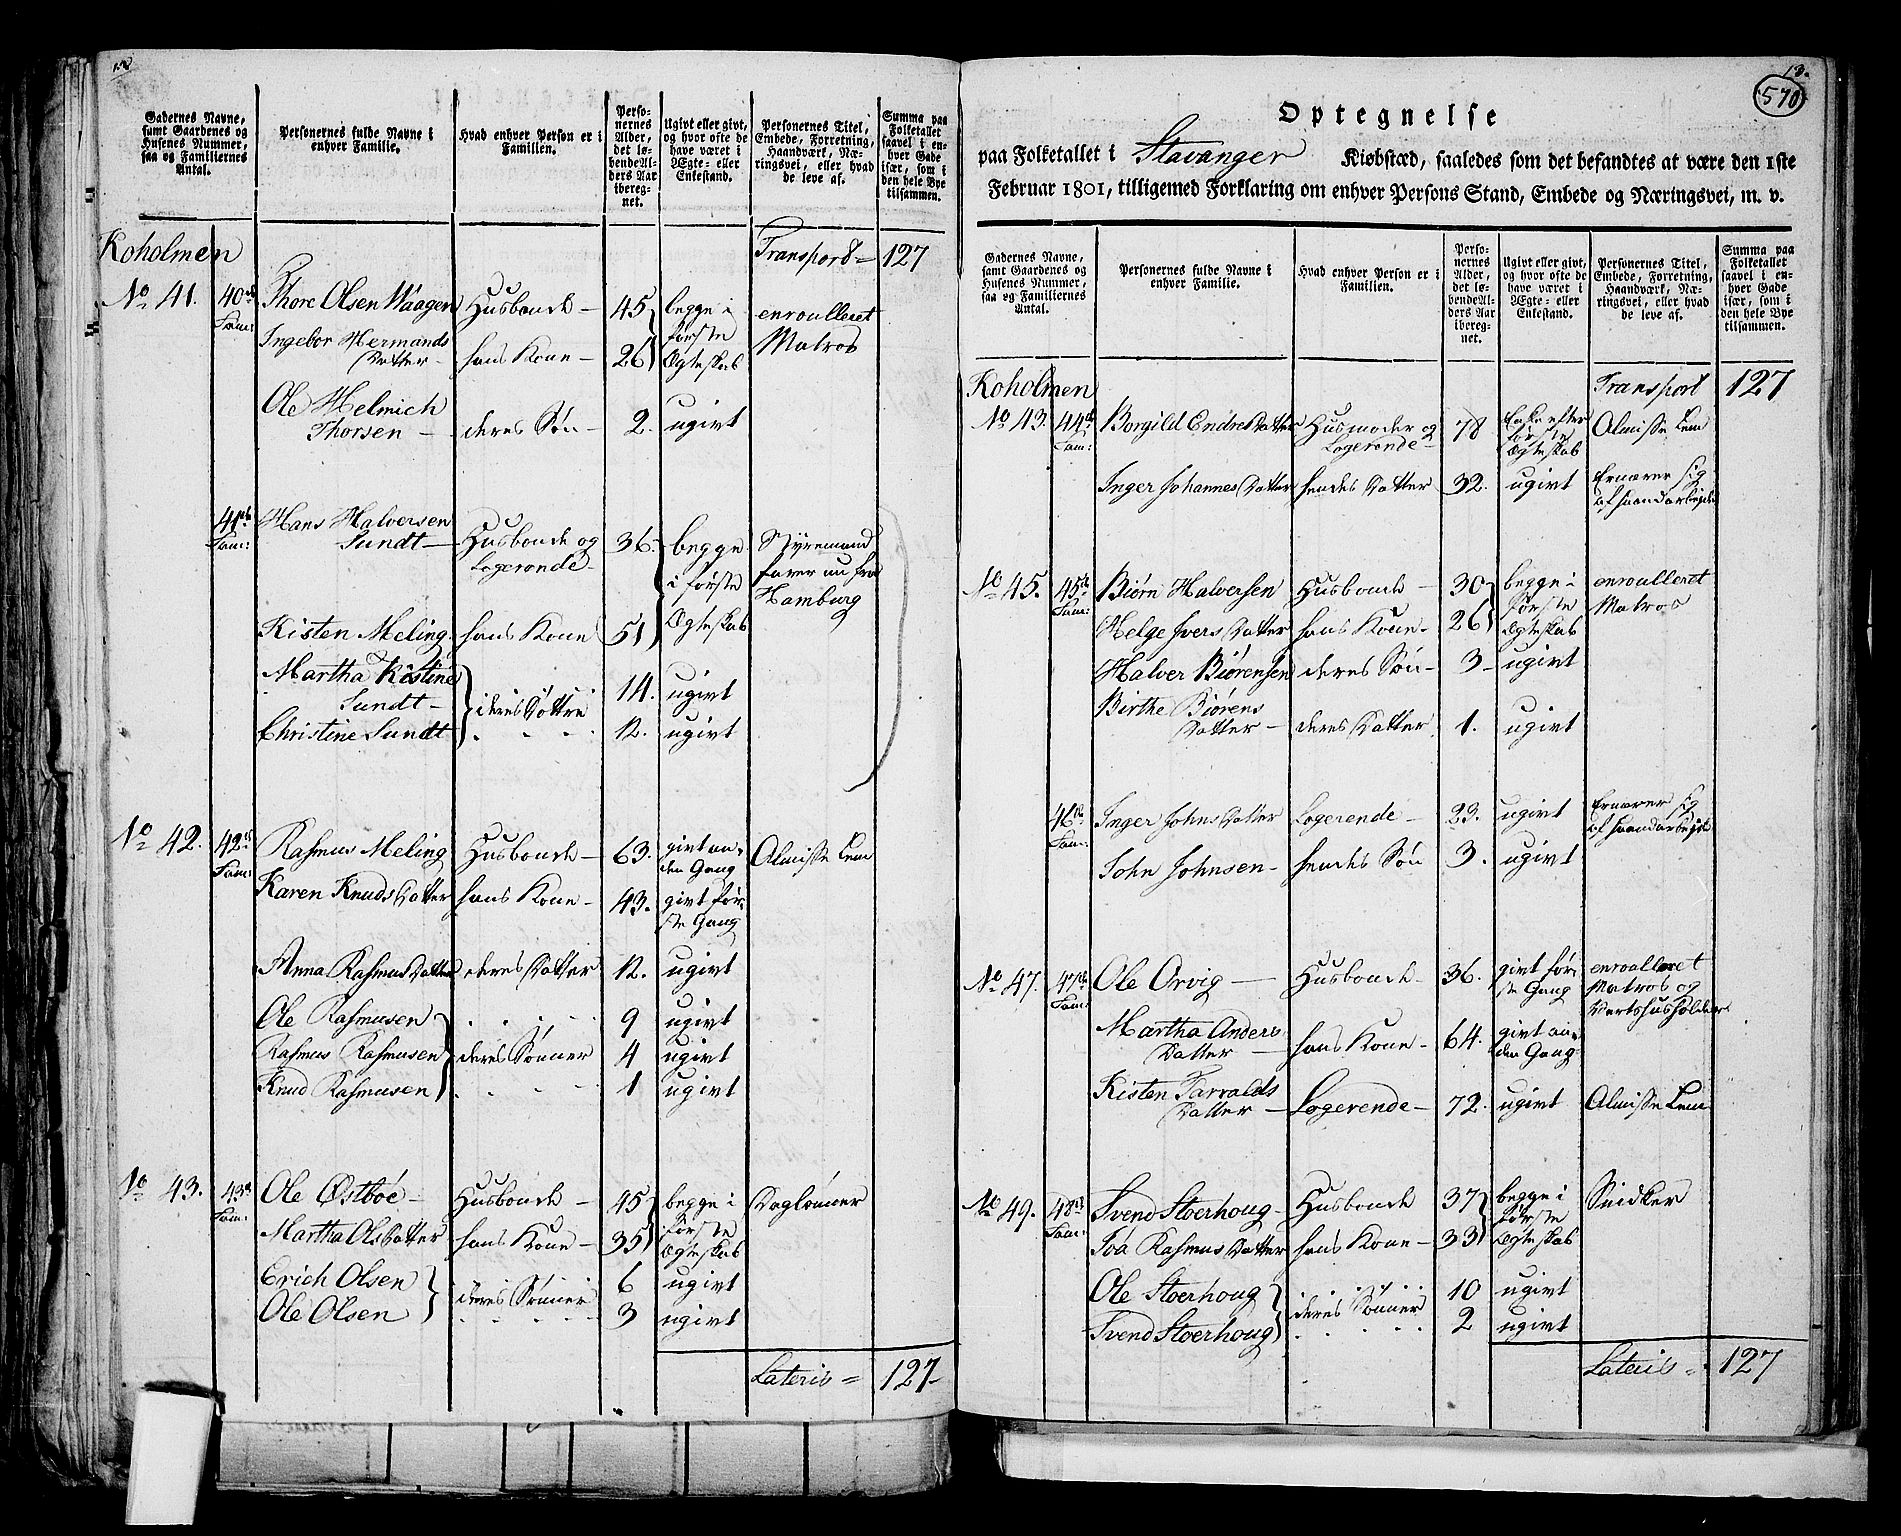 Gadernes Navne, samt Gaardenes og Husenes Nummer, saa og Familiernes Antal.
Personernes fulde Navne i enhver Familie.
Hvad enhver Person er i Familien.
Personernes Alder, det løbende Alders Aar iberegnet.
Ugivt eller givt, og hvor ofte de have været i Ægte- eller Enkestand.
Personernes Titel, Embede, Forretning, Haandværk, Næringsvei, eller hvad de leve af.
Summa paa Folketallet saavel i enhver Gade især, som i den hele Bye tilsammen.
Koholmen Transport 127
No 41. 40de Fam: Thore Olsen Waagen Husbonde 45 begge i første Ægteskab enroulleret Matros
Ingebor Hermands Datter hans Kone 26
Ole Helmich Thorsen deres Søn 2. ugivt
41de Fam: Hans Halversen Sundt Husbonde og Logerende 36. begge i første Ægteskab Styremand farer nu fra Hamburg
Kisten Meling hans Kone 51
Martha Kistine Sundt 14. ugivt
deres Døttre
Christine Sundt 12. ugivt
No 42. 42de Fam: Rasmus Meling Husbonde 63. givt anden Gang Almisse Lem
Karen Knuds Datter hans Kone 43. givt første Gang
Anna Rasmus Datter deres Datter 12. ugivt
Ole Rasmusen 9 ugivt
Rasmus Rasmusen deres Sønner 4 ugivt
Knud Rasmusen 1 ugivt
No 43. 43de Fam: Ole Østbøe Husbonde 45 begge i første Ægteskab Daglønner
Martha Ols Datter hans Kone 35
Erich Olsen deres Sønner 6 ugivt
Ole Olsen 3 ugivt
Lateris = 127
13.
570
Optegnelse
paa Folketallet i Stavanger Kiøbstæd, saaledes som det befandtes at være den 1ste
Februar 1801, tilligemed Forklaring om enhver Persons Stand, Embede og Næringsvei, m. v.
Gadernes Navne, samt Gaardenes og Husenes Nummer, saa og Familiernes Antal.
Personernes fulde Navne i enhver Familie.
Hvad enhver Person er i Familien.
Personernes Alder, det løbende Alders Aar iberegnet.
Ugivt eller givt, og hvor ofte de have været i Ægte- eller Enkestand.
Personernes Titel, Embede, Forretning, Haandværk, Næringsvei, eller hvad de leve af.
Summa paa Folketallet saavel i enhver Gade især, som i den hele Bye tilsammen.
Koholmen Transport 127
No 43. 44de Fam: Borgild Endres Datter Husmoder og Logerende 78 Enke efter første Ægteskab Almisse Lem
Inger Johannes Datter hendes Datter 32. ugivt Ernærer sig af haandarbejde
No 45. 45de Fam: Biørn Halversen Husbonde 30 begge i første Ægteskab enroulleret Matros
Helge Ivers Datter hans Kone 26
Halver Biørensen deres Søn 3 ugivt
Birthe Biørens Datter deres Datter 1. ugivt
46de Fam: Inger Johns Datter Logerende 23. ugivt Ernærer sig af haandarbejde
John Johnsen hendes Søn 3. ugivt
No 47. 47de Fam: Ole Orvig Husbonde 36. givt første Gang enroulleret Matros og Vertshusholder
Martha Anders Datter hans Kone 64. givt anden Gang
Kisten Tarralds Datter Logerende 72. ugivt Almisse Lem
No 49. 48de Fam: Svend Stoerhoug Husbonde 37 begge i første Ægteskab Snidker
Siøa Rasmus Datter hans Kone 33
Ole Stoerhoug 10 ugivt
deres Sønner
Svend Stoerhoug 2 ugivt
Lateris = 127